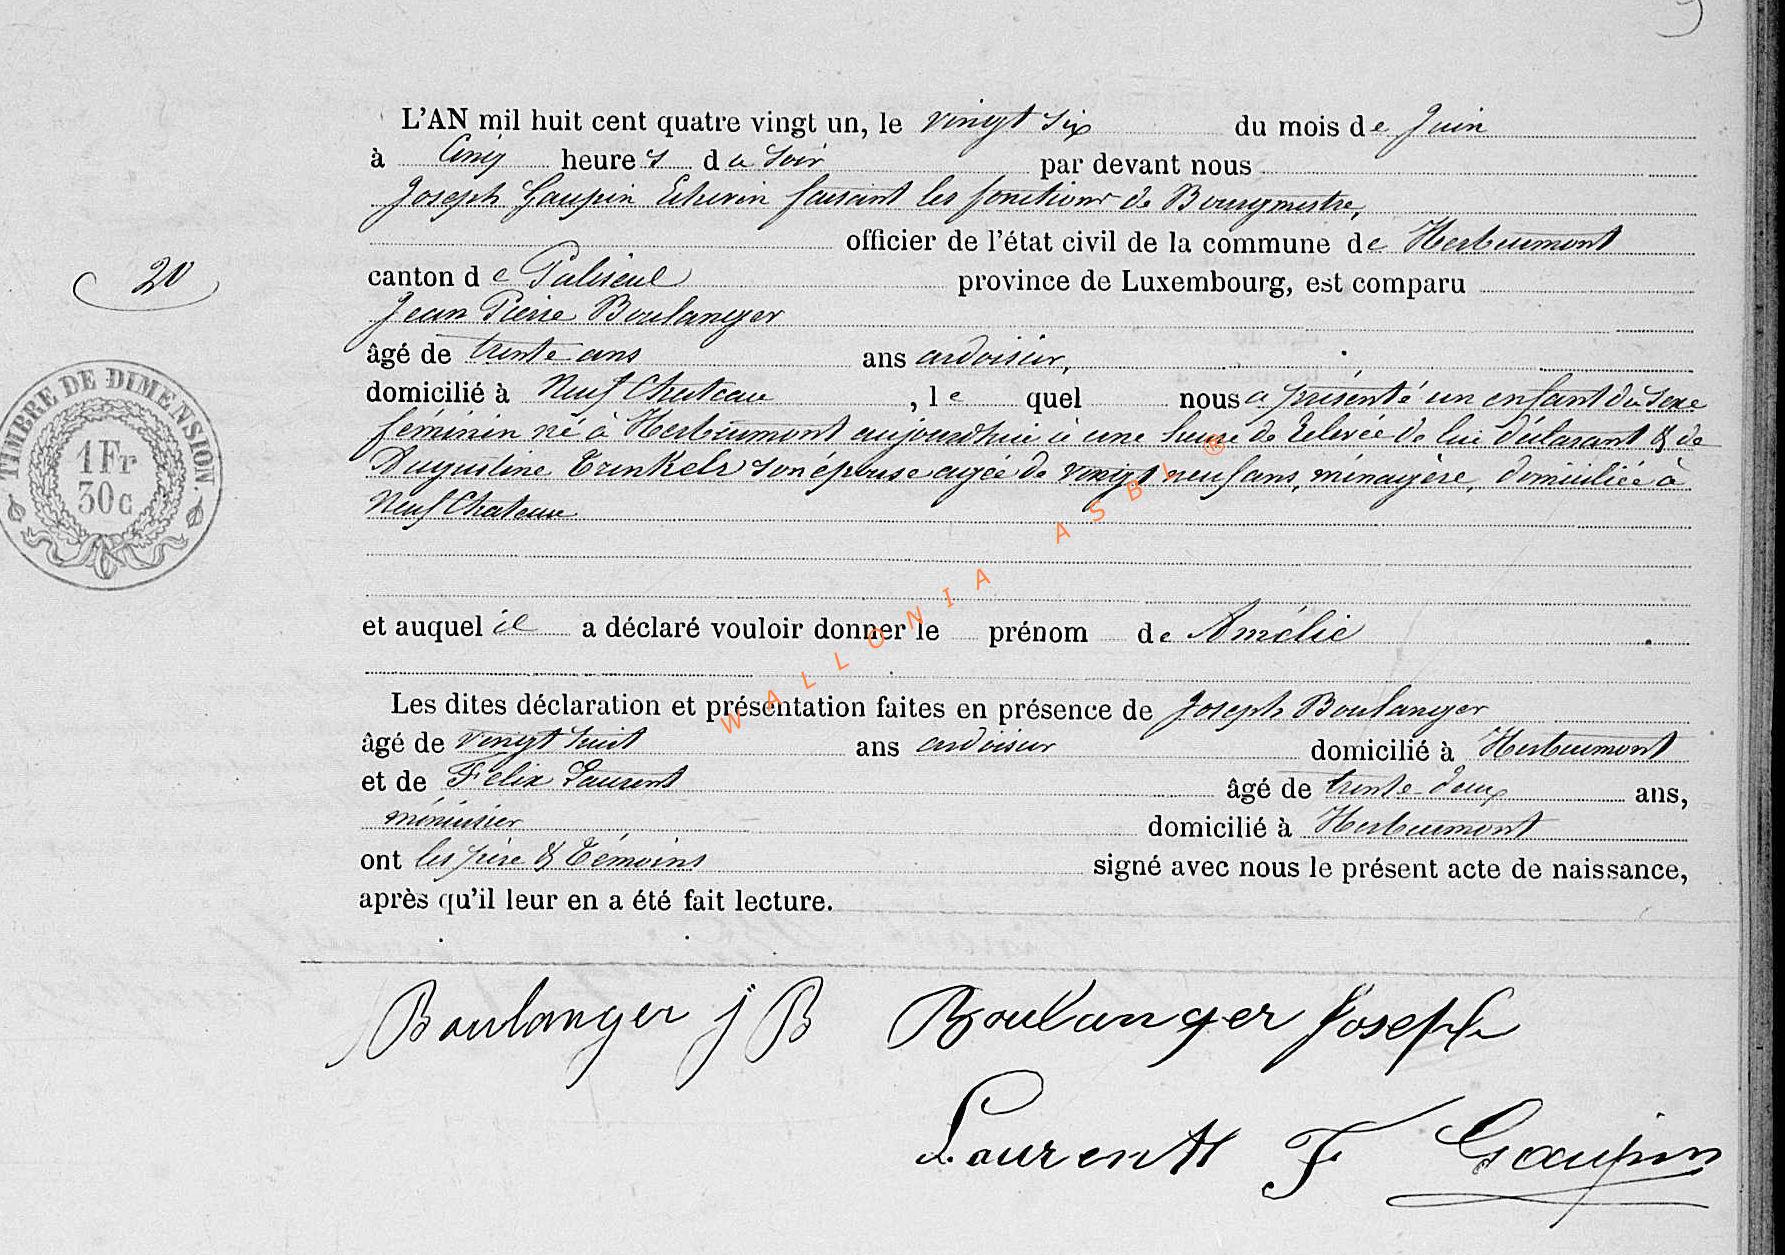 L'AN mil huit cent quatre vingt un, le vingt six du mois de Juin
à Cinq heures du soir par devant nous
Joseph Gaupin Echevin faisant les fonctions de Bourgmestre,
officier de l'état civil de la commune de Herbeumont
20
canton de Paliseul province de Luxembourg, est comparu
Jean Pierre Boulanger
âgé de trente ans ans ardoisier,
domicilié à Neuf Chateau, le quel nous a présenté un enfant du sexe
féminin né à Herbeumont aujourdhui à une heure de relevée de lui déclarant & de
Augustine Trinkels son épouse agée de vingt neuf ans, ménagère, domiciliée à
Neuf Chateau
TIMBRE DE DIMENSION.
1 Fr
30 c
et auquel il a déclaré vouloir donner le prénom de Amélie
Les dites déclaration et présentation faites en présence de Joseph Boulanger
âgé de vingt huit ans ardoisier domicilié à Herbeumont
et de Felix Laurent âgé de trente-deux ans,
ménuisier domicilié à Herbeumont
ont les père & témoins signé avec nous le présent acte de naissance,
après qu'il leur en a été fait lecture.
Boulanger j B Boulanger Joseph
Laurent F Gaupin
WALLONIA ASBL ®